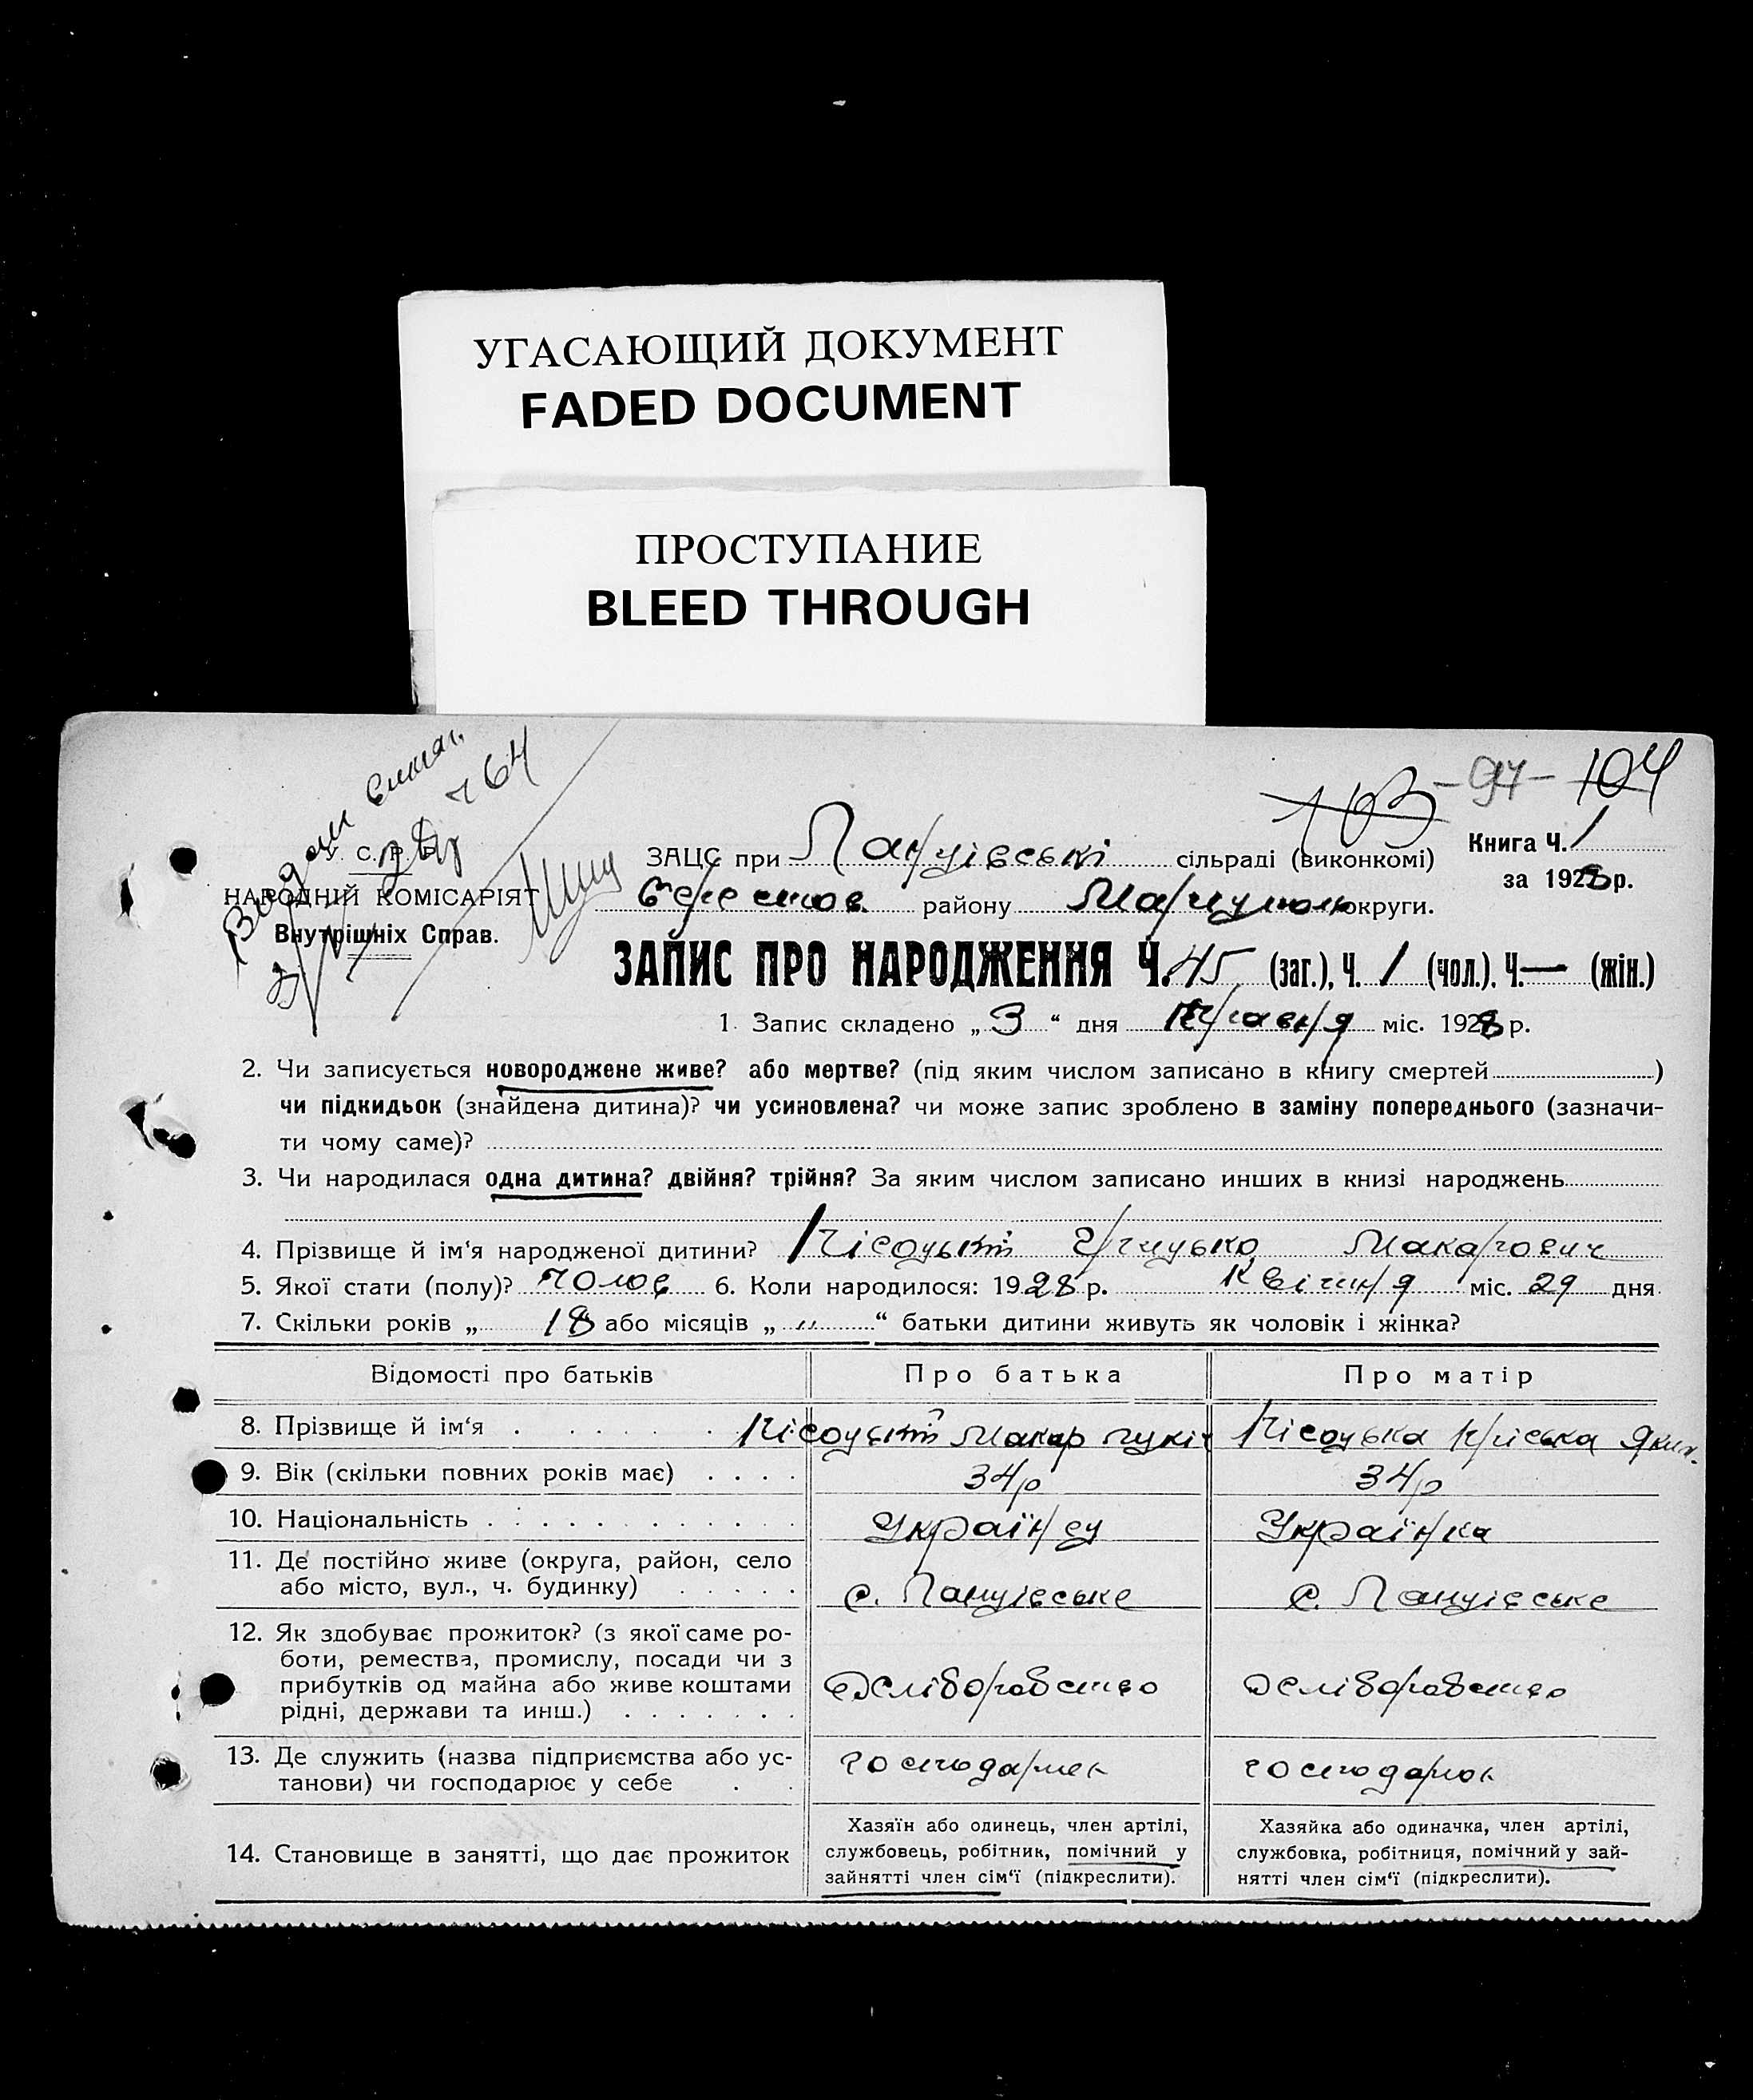 УГАСАЮЩИЙ ДОКУМЕНТ
FADED DOCUMENT
ПРОСТУПАНИЕ
BLEED THROUGH
764
103 -97- 104
У. С. Р. Р.
НАРОДНІЙ КОМІСАРІЯТ
Внутрішніх Справ.
ЗАЦС при сільраді (виконкомі) Книга Ч. 1
району округи. за 1928 р.
ЗАПИС ПРО НАРОДЖЕННЯ Ч. 45 (заг.), Ч. 1 (чол.). Ч. — (жін.)
1. Запис складено „ 3 “ дня Травня міс. 1928 р.
2. Чи записується новороджене живе? або мертве? (під яким числом записано в книгу смертей )
чи підкидьок (знайдена дитина)? чи усиновлена? чи може запис зроблено в заміну попереднього (зазначи-
ти чому саме)?
3. Чи народилася одна дитина? двійня? трійня? За яким числом записано инших в книзі народжень
4. Прізвище й ім‘я народженої дитини? Грицько Макарович
5. Якої стати (полу)? чолов 6. Коли народилося: 1928 р. Квітня міс. 29 дня
7. Скільки років „ 18 або місяців „ " “ батьки дитини живуть як чоловік і жінка?
Відомості про батьків Про батька Про матір
8. Прізвище й ім‘я Макар
9. Вік (скільки повних років має) 34р 34р
10. Національність Українец Українка
11. Де постійно живе (округа, район, село
або місто, вул., ч. будинку) с. с.
12. Як здобуває прожиток? (з якої саме ро-
боти, ремества, промислу, посади чи з
прибутків од майна або живе коштами хліборобство хліборобство
рідні, держави та инш.)
13. Де служить (назва підприємства або ус-
танови) чи господарює у себе
14. Становище в занятті, що дає прожиток
Хазяїн або одинець, член артілі,
службовець, робітник, помічний у
зайнятті член сім‘ї (підкреслити).
Хазяйка або одиначка, член артілі,
службовка, робітниця, помічний у зай-
нятті член сім‘ї (підкреслити).